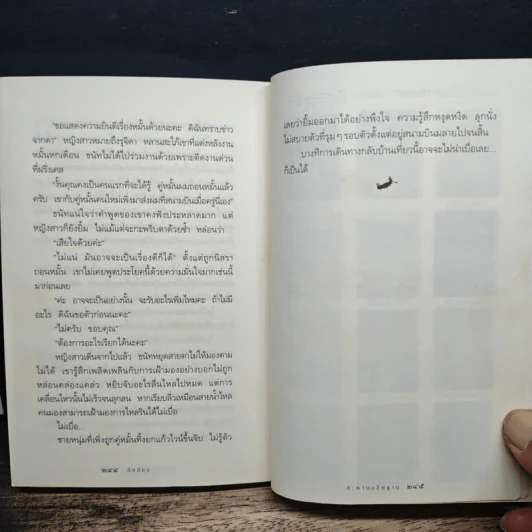 "ขอแสดงความยินดีเรื่องหมั้นด้วยนะคะ ดิฉันทราบข่าว
จากตา" หญิงสาวหมายถึงรุจิตา หลานสะใภ้เขาที่แต่งหลังงาน
หมั้นหกเดือน ธนัทไม่ได้ไปร่วมงานด้วยเพราะติดงานด่วน
ที่ฝรั่งเศส
"งั้นคุณคงเป็นคนแรกที่จะได้รู้ คู่หมั้นผมถอนหมั้นแล้ว
ครับ เขากับคู่หมั้นคนใหม่เพิ่งมาส่งผมที่สนามบินเมื่อครู่นี้เอง"
ธนัทแน่ใจว่าคำพูดของเขาคงฟังประหลาดมาก แต่
หญิงสาวก็ยังยิ้ม ไม่แม้แต่จะกะพริบตาด้วยซ้ำ หล่อนว่า
"เสียใจด้วยค่ะ"
"ไม่แน่ มันอาจจะเป็นเรื่องดีก็ได้" ตั้งแต่ถูกนิสรา
ถอนหมั้น เขาไม่เคยพูดประโยคนี้ด้วยความมั่นใจมากเช่นนี้
มาก่อนเลย
"ค่ะ อาจจะเป็นอย่างนั้น จะรับอะไรเพิ่มไหมคะ ถ้าไม่มี
อะไร ดิฉันขอตัวก่อนนะคะ"
"ไม่ครับ ขอบคุณ"
"ต้องการอะไรเรียกได้นะคะ"
หญิงสาวเดินจากไปแล้ว ธนัทหยุดสายตาไม่ให้มองตาม
ไม่ได้ เขารู้สึกเพลิดเพลินกับการเฝ้ามองอย่างบอกไม่ถูก
หล่อนคล่องแคล่ว หยิบจับอะไรลื่นไหลไปหมด แต่การ
เคลื่อนไหวนั้นไม่เร็วจนลุกลน หากเรียบลิ่วเหมือนสายน้ำไหล
คนมองสามารถเฝ้ามองการไหลรินได้ไม่เบื่อ
ไม่เบื่อ...
ชายหนุ่มที่เพิ่งถูกคู่หมั้นทิ้งยกแก้วไวน์ขึ้นจิบ ไม่รู้ตัว
๒๔๔
เลยว่ายิ้มออกมาได้อย่างพึงใจ ความรู้สึกหงุดหงิด ลุกนั่ง
ไม่สบายตัวที่รุมๆ รอบตัวตั้งแต่อยู่สนามบินมลายไปจนสิ้น
บางทีการเดินทางกลับบ้านเที่ยวนี้อาจจะไม่น่าเบื่อเลย...
ก็เป็นได้
๒๔๕